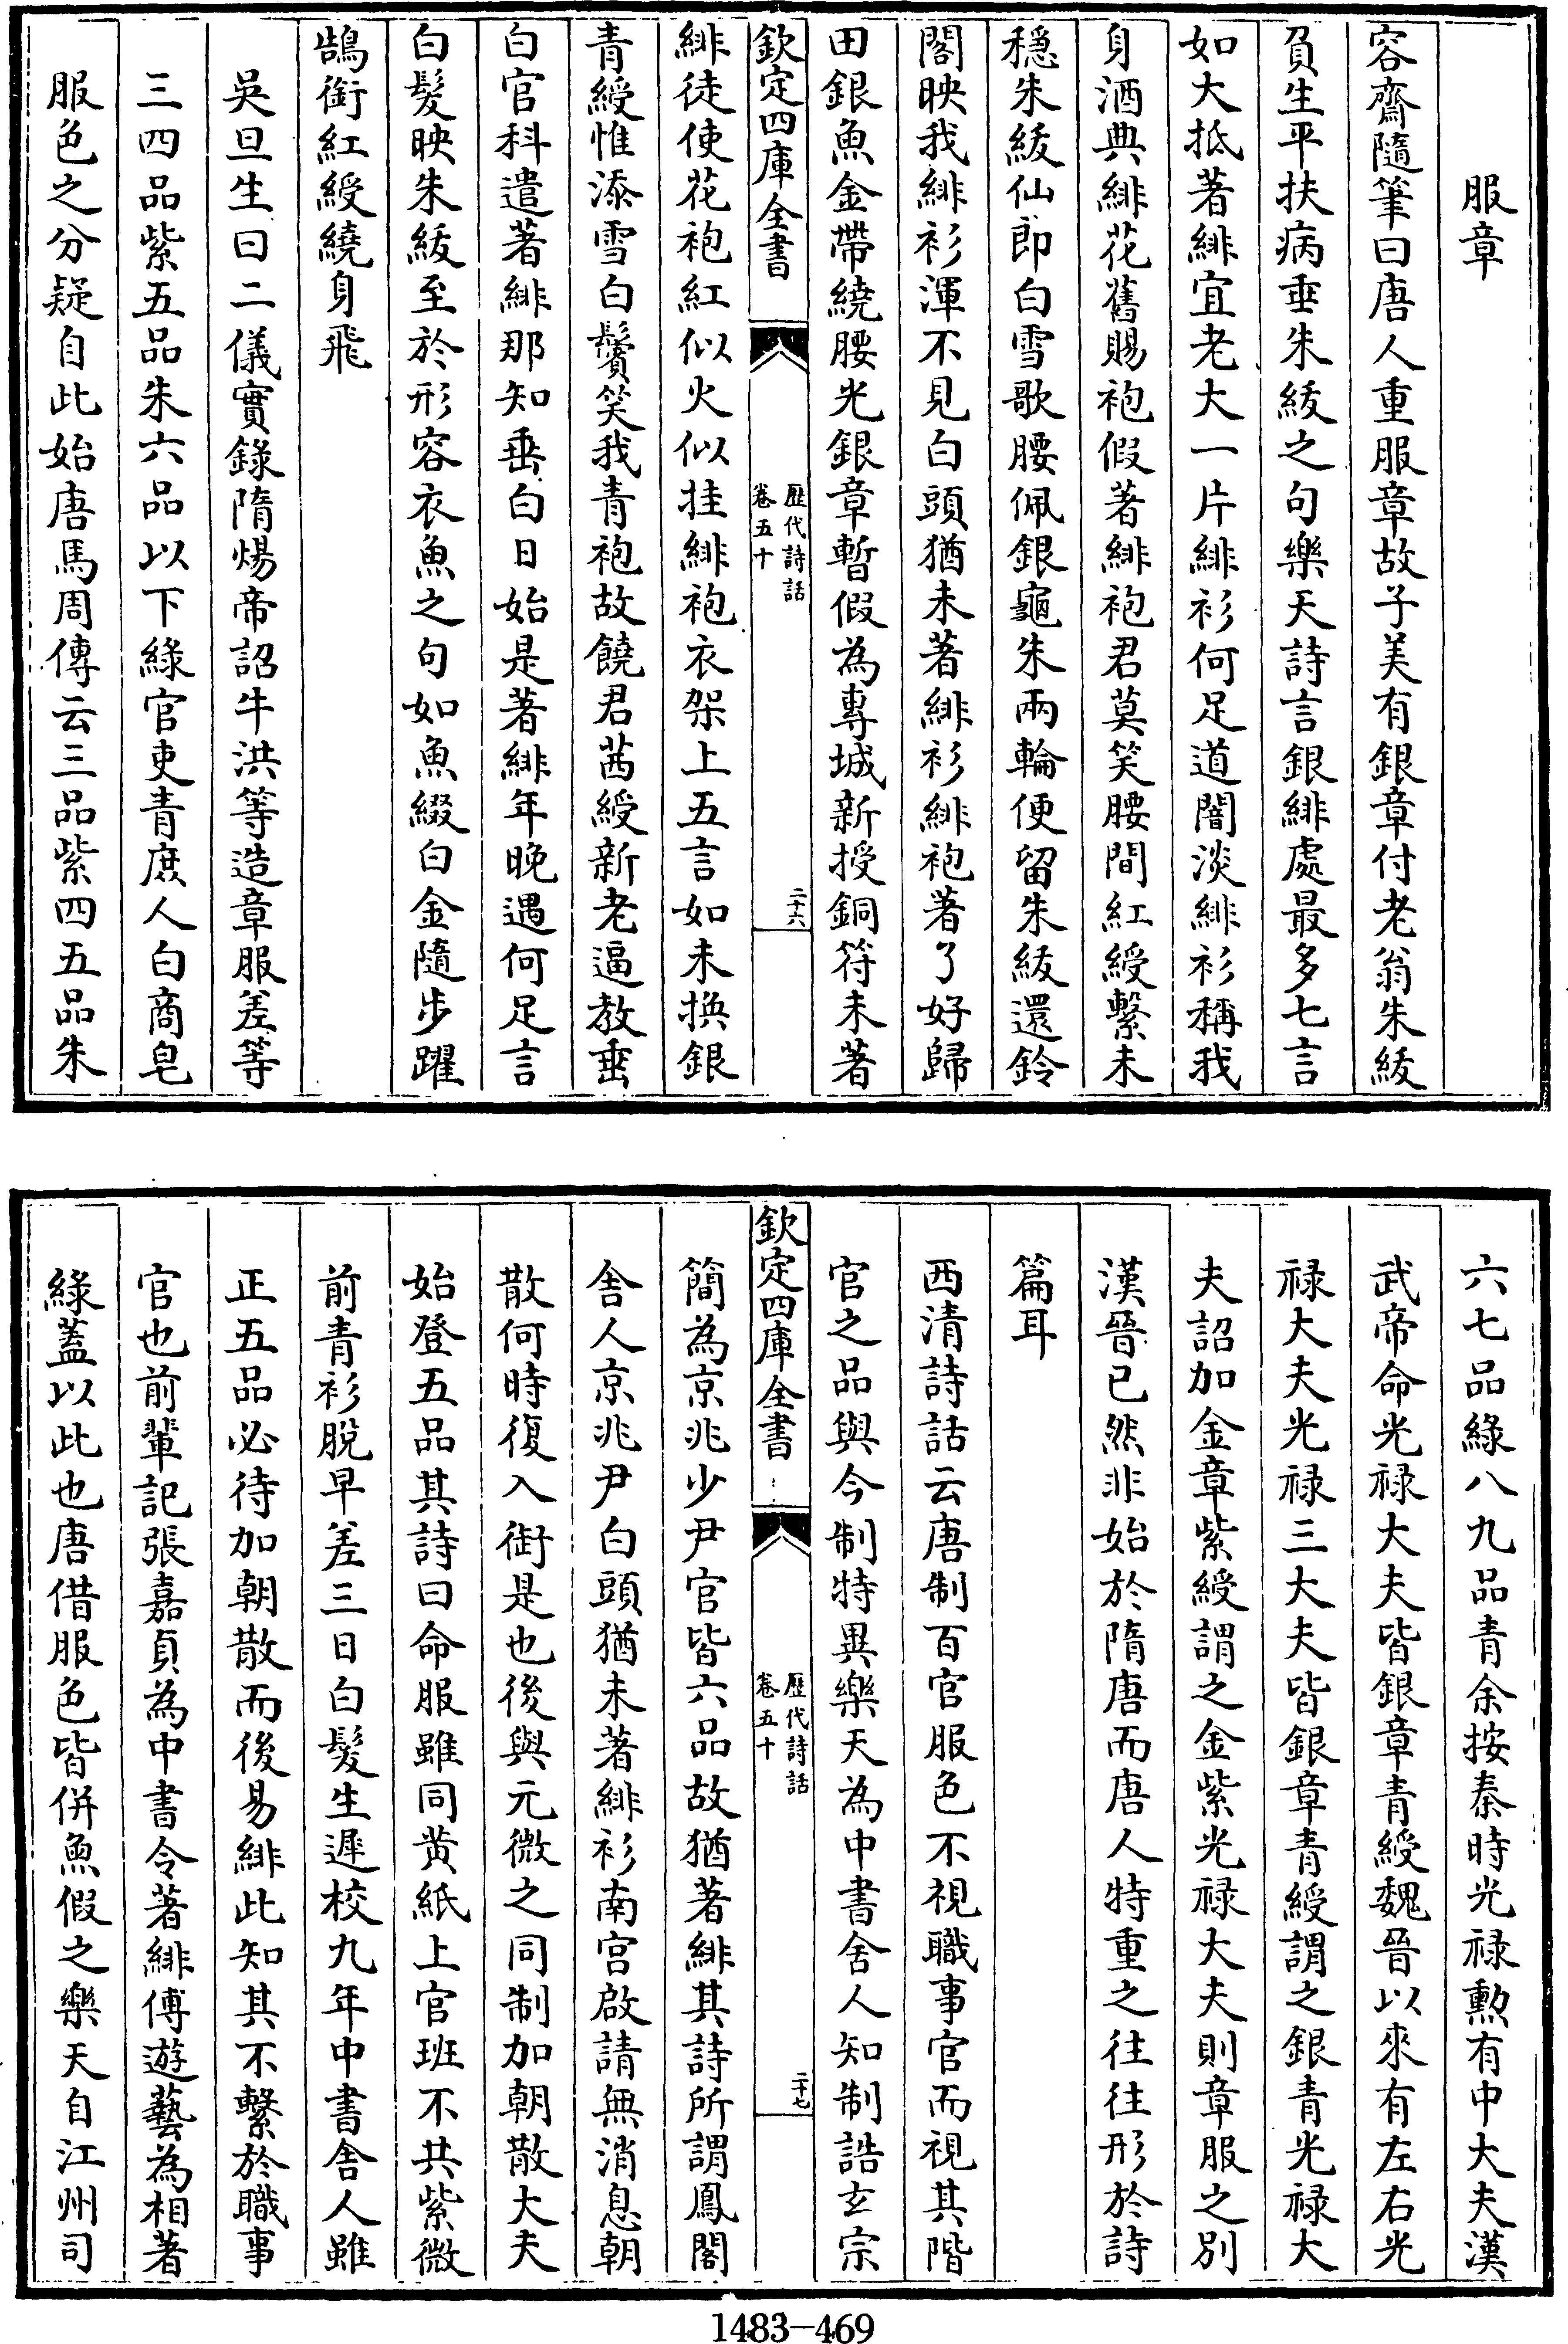 服章
容齋隨筆曰唐人重服章故子美有銀章付老翁朱紱
負生平扶病垂朱紱之句樂天詩言銀緋處最多七言
如大抵著緋宜老大一片緋衫何足道闇淡緋衫稱我
身酒典緋花舊賜袍假著緋袍君莫笑腰間紅綬繫未
穩朱紱仙郎白雪歌腰佩銀龜朱兩輪便留朱紱還鈴
閣映我緋衫渾不見白頭猶未著緋衫緋袍著了好歸
田銀魚金帶繞腰光銀章暫假為專城新授銅符未著
欽定四庫全書
歷代詩話
卷五十
二十六
緋徒使花袍紅似火似挂緋袍衣架上五言如未換銀
青綬惟添雪白鬢笑我青袍故饒君茜綬新老逼教垂
白官科遣著緋那知垂白日始是著緋年晚遇何足言
白髮映朱紱至於形容衣魚之句如魚綴白金隨步躍
鵠銜紅綬繞身飛
吳旦生曰二儀實錄隋煬帝詔牛洪等造章服差等
三四品紫五品朱六品以下綠官吏青庶人白商皂
服色之分疑自此始唐馬周傳云三品紫四五品朱
六七品綠八九品青余按秦時光祿勳有中大夫漢
武帝命光祿大夫皆銀章青綬魏晉以來有左右光
祿大夫光祿三大夫皆銀章青綬謂之銀青光祿大
夫詔加金章紫綬謂之金紫光祿大夫則章服之別
漢晉已然非始於隋唐而唐人特重之往往形於詩
篇耳
西清詩話云唐制百官服色不視職事官而視其階
官之品與今制特異樂天為中書舍人知制誥玄宗
欽定四庫全書
歷代詩話
卷五十
二十七
簡為京兆少尹官皆六品故猶著緋其詩所謂鳳閣
舍人京兆尹白頭猶未著緋衫南宮啟請無消息朝
散何時復入銜是也後與元微之同制加朝散大夫
始登五品其詩曰命服雖同黃紙上官班不共紫微
前青衫脫早差三日白髮生遲校九年中書舍人雖
正五品必待加朝散而後易緋此知其不繫於職事
官也前輩記張嘉貞為中書令著緋傅遊藝為相著
綠蓋以此也唐借服色皆併魚假之樂天自江州司
1483-469